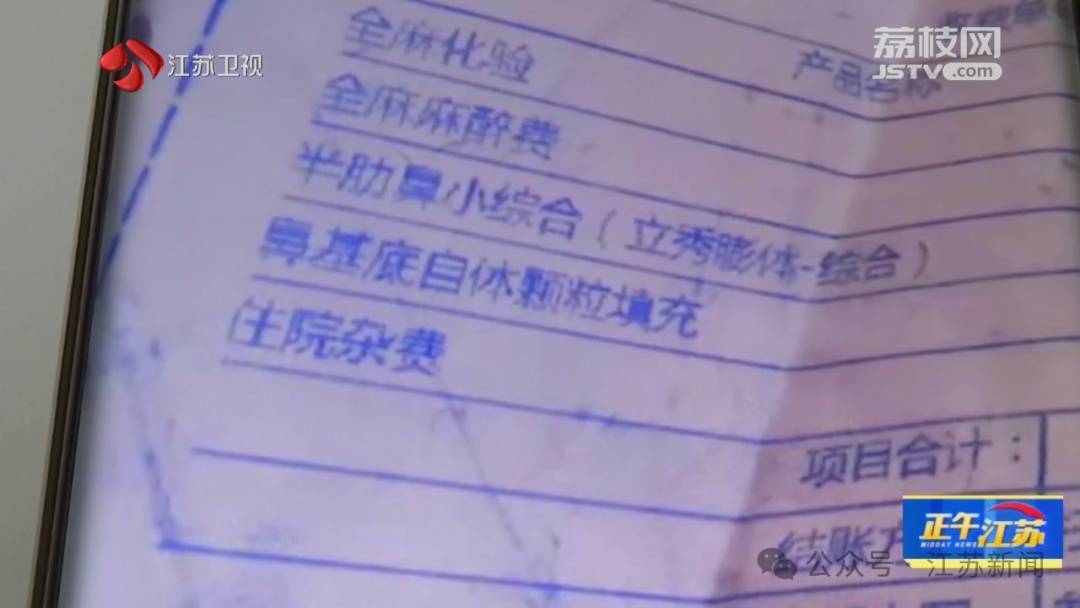 江苏卫视
荔枝网
JSTV.com
全麻化验
产品名称
全麻麻醉费
半肋鼻小综合（立秀膨体-综合）
鼻基底自体颗粒填充
住院杂费
项目合计：
结账方
正午江苏
MIDDAY NEWS
公众号·江苏新闻